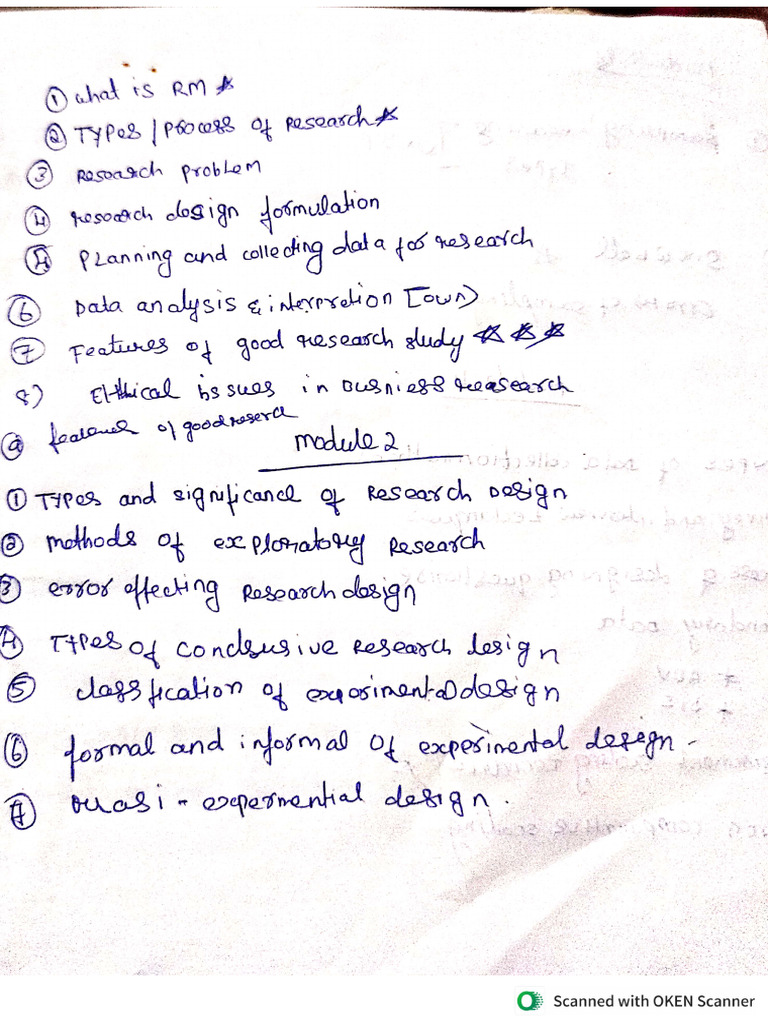 ① What is RM ☆
② Types / Process of Research ☆
③ Research problem
④ research design formulation
④ Planning and collecting data for research
⑥ Data analysis & interpretion [own)
⑦ Features of good research study ☆ ☆ ☆
8) Ethical issues in Business research
⑨ features of good reserch
Module 2
① Types and significance of Research Design
② methods of exploratory Research
③ error effecting Research design
④ Types of conclsusive Research design
⑤ classfication of experimental design
⑥ formal and informal of experimental design -
⑦ Quasi - expermential design.
Scanned with OKEN Scanner